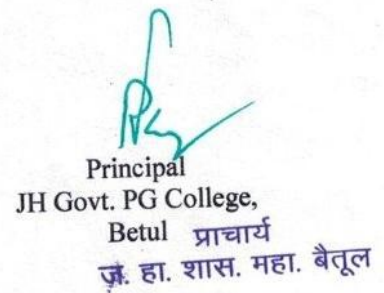 Principal
JH Govt. PG College,
Betul प्राचार्य
ज. हा. शास. महा. बैतूल